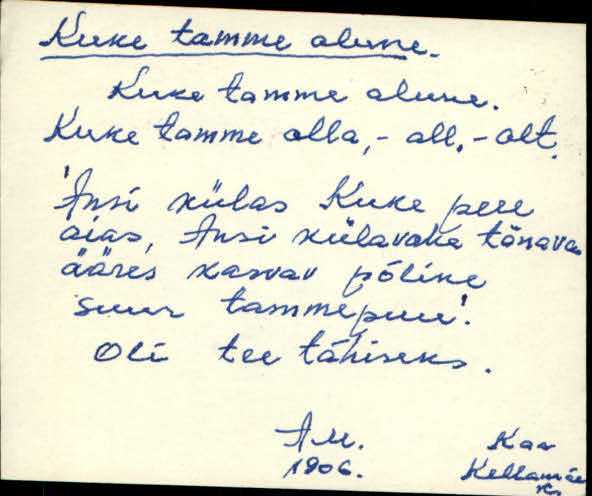 Kuke tamme alune.
Kuke tamme alune.
Kuke tamme alla, - all, - alt.
'Ansi külas Kuke pere
aias, Ansi külavahe tänava
ääres kasvav põline
suur tammepuu'.
Oli tee tähiseks.
A.M. Kaa
1906. Kellamäe